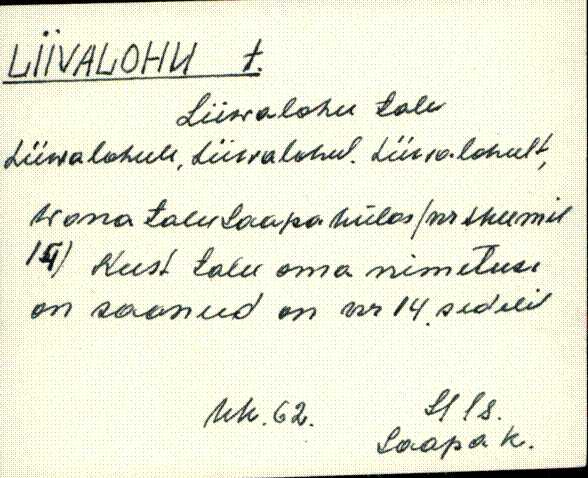 LIIVALOHU t.
Liivalohu talu
Liivalohule, Liivalohul. Liivalohult,
Wana talu Laapa külas /nr skeemil
15/ Kust talu oma nimetuse
on saanud on nr 14. sedelil
kk. 62. Lls.
Laapa k.